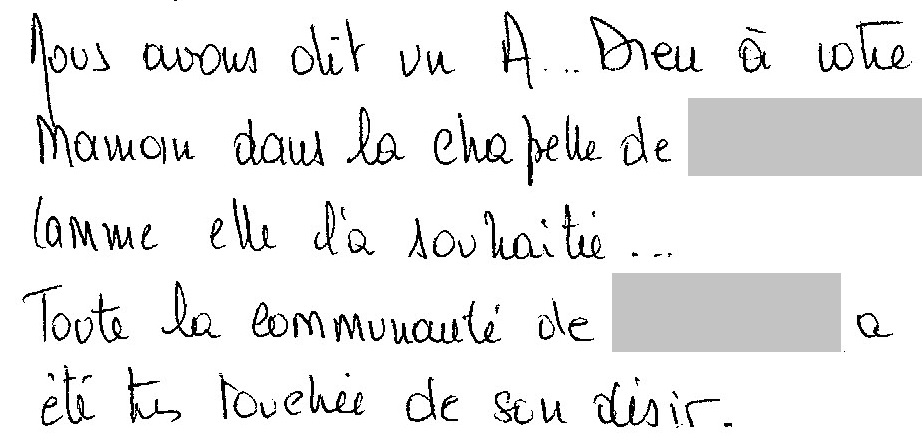 Nous avons dit un A... Dieu à votre
Maman dans la chapelle de
Comme elle l'a souhaitée...
Toute la communauté de
a
été très touchée de son désir.